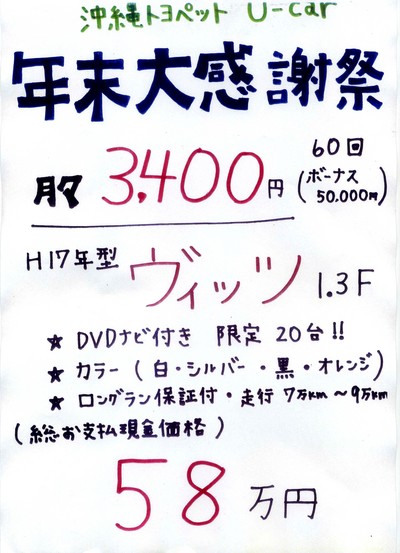 沖縄トヨペット U-car
年末大感謝祭
月々 3,400円 60回
(ボーナス 50.000円)
H17年型 ヴィッツ 1.3F
★ DVDナビ付き 限定 20台!!
★ カラー ( 白・シルバー・黒・オレンジ)
★ ロングラン保証付・走行 7万km~9万km
(総お支払現金価格)
58万円